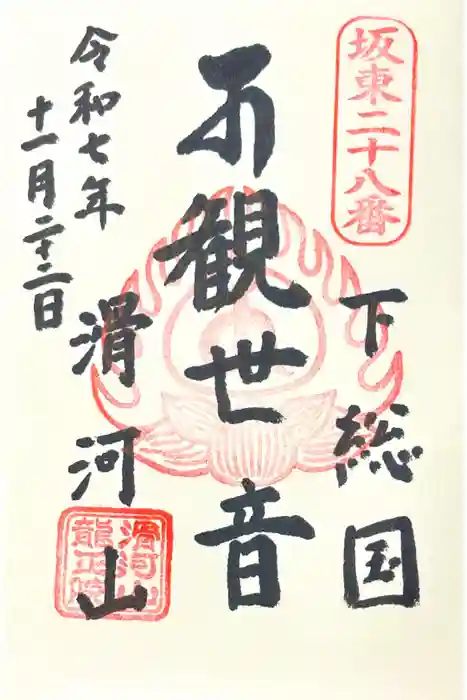 坂東二十八番
下総国
観世音
滑河山
令和七年
十一月二十二日
滑河山
龍正院